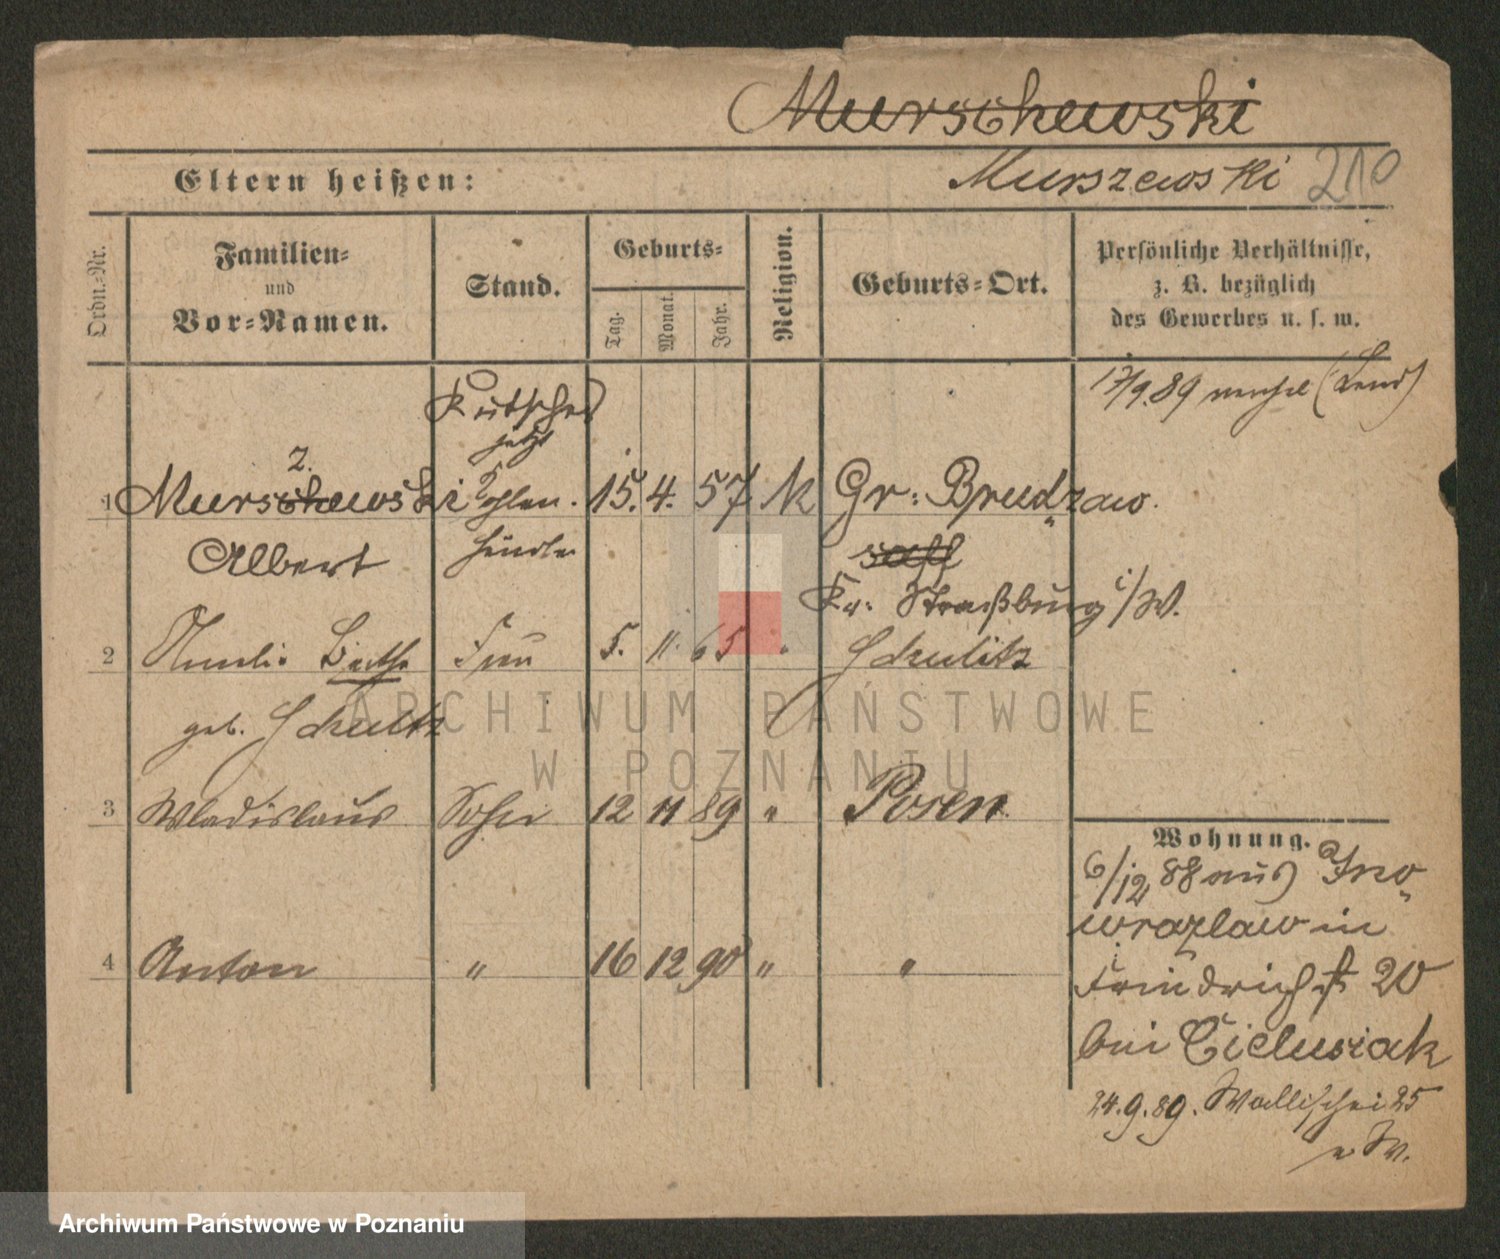 Murschewski
Eltern heißen:
Murszewski 210
Ordn.-Nr.
Familien-
und
Vor-Namen.
Stand.
Geburts-
Tag.
Monat.
Jahr.
Religion.
Geburts-Ort.
Persönliche Verhältnisse,
z. B. bezüglich
des Gewerbes u. s. w.
17/9.89
Kutscher
jetzt
z.
1 Murschewski Kohlen- 15. 4. 57 k Gr: Brudzaw
Albert händler
Kr: Straßburg i/W.
2 Amalie Berthe Frau 5. 11. 65 " Schulitz
geb. Schultz
3 Wladislaus Sohn 12 11 89 " Posen
Wohnung.
6/12 88 aus Ino-
wrazlaw in
Friedrichst 20
bei Cielusiak
4 Anton " 16 12 90 " "
24.9.89. Wallischei 25
ARCHIWUM PAŃSTWOWE
W POZNANIU
Archiwum Państwowe w Poznaniu